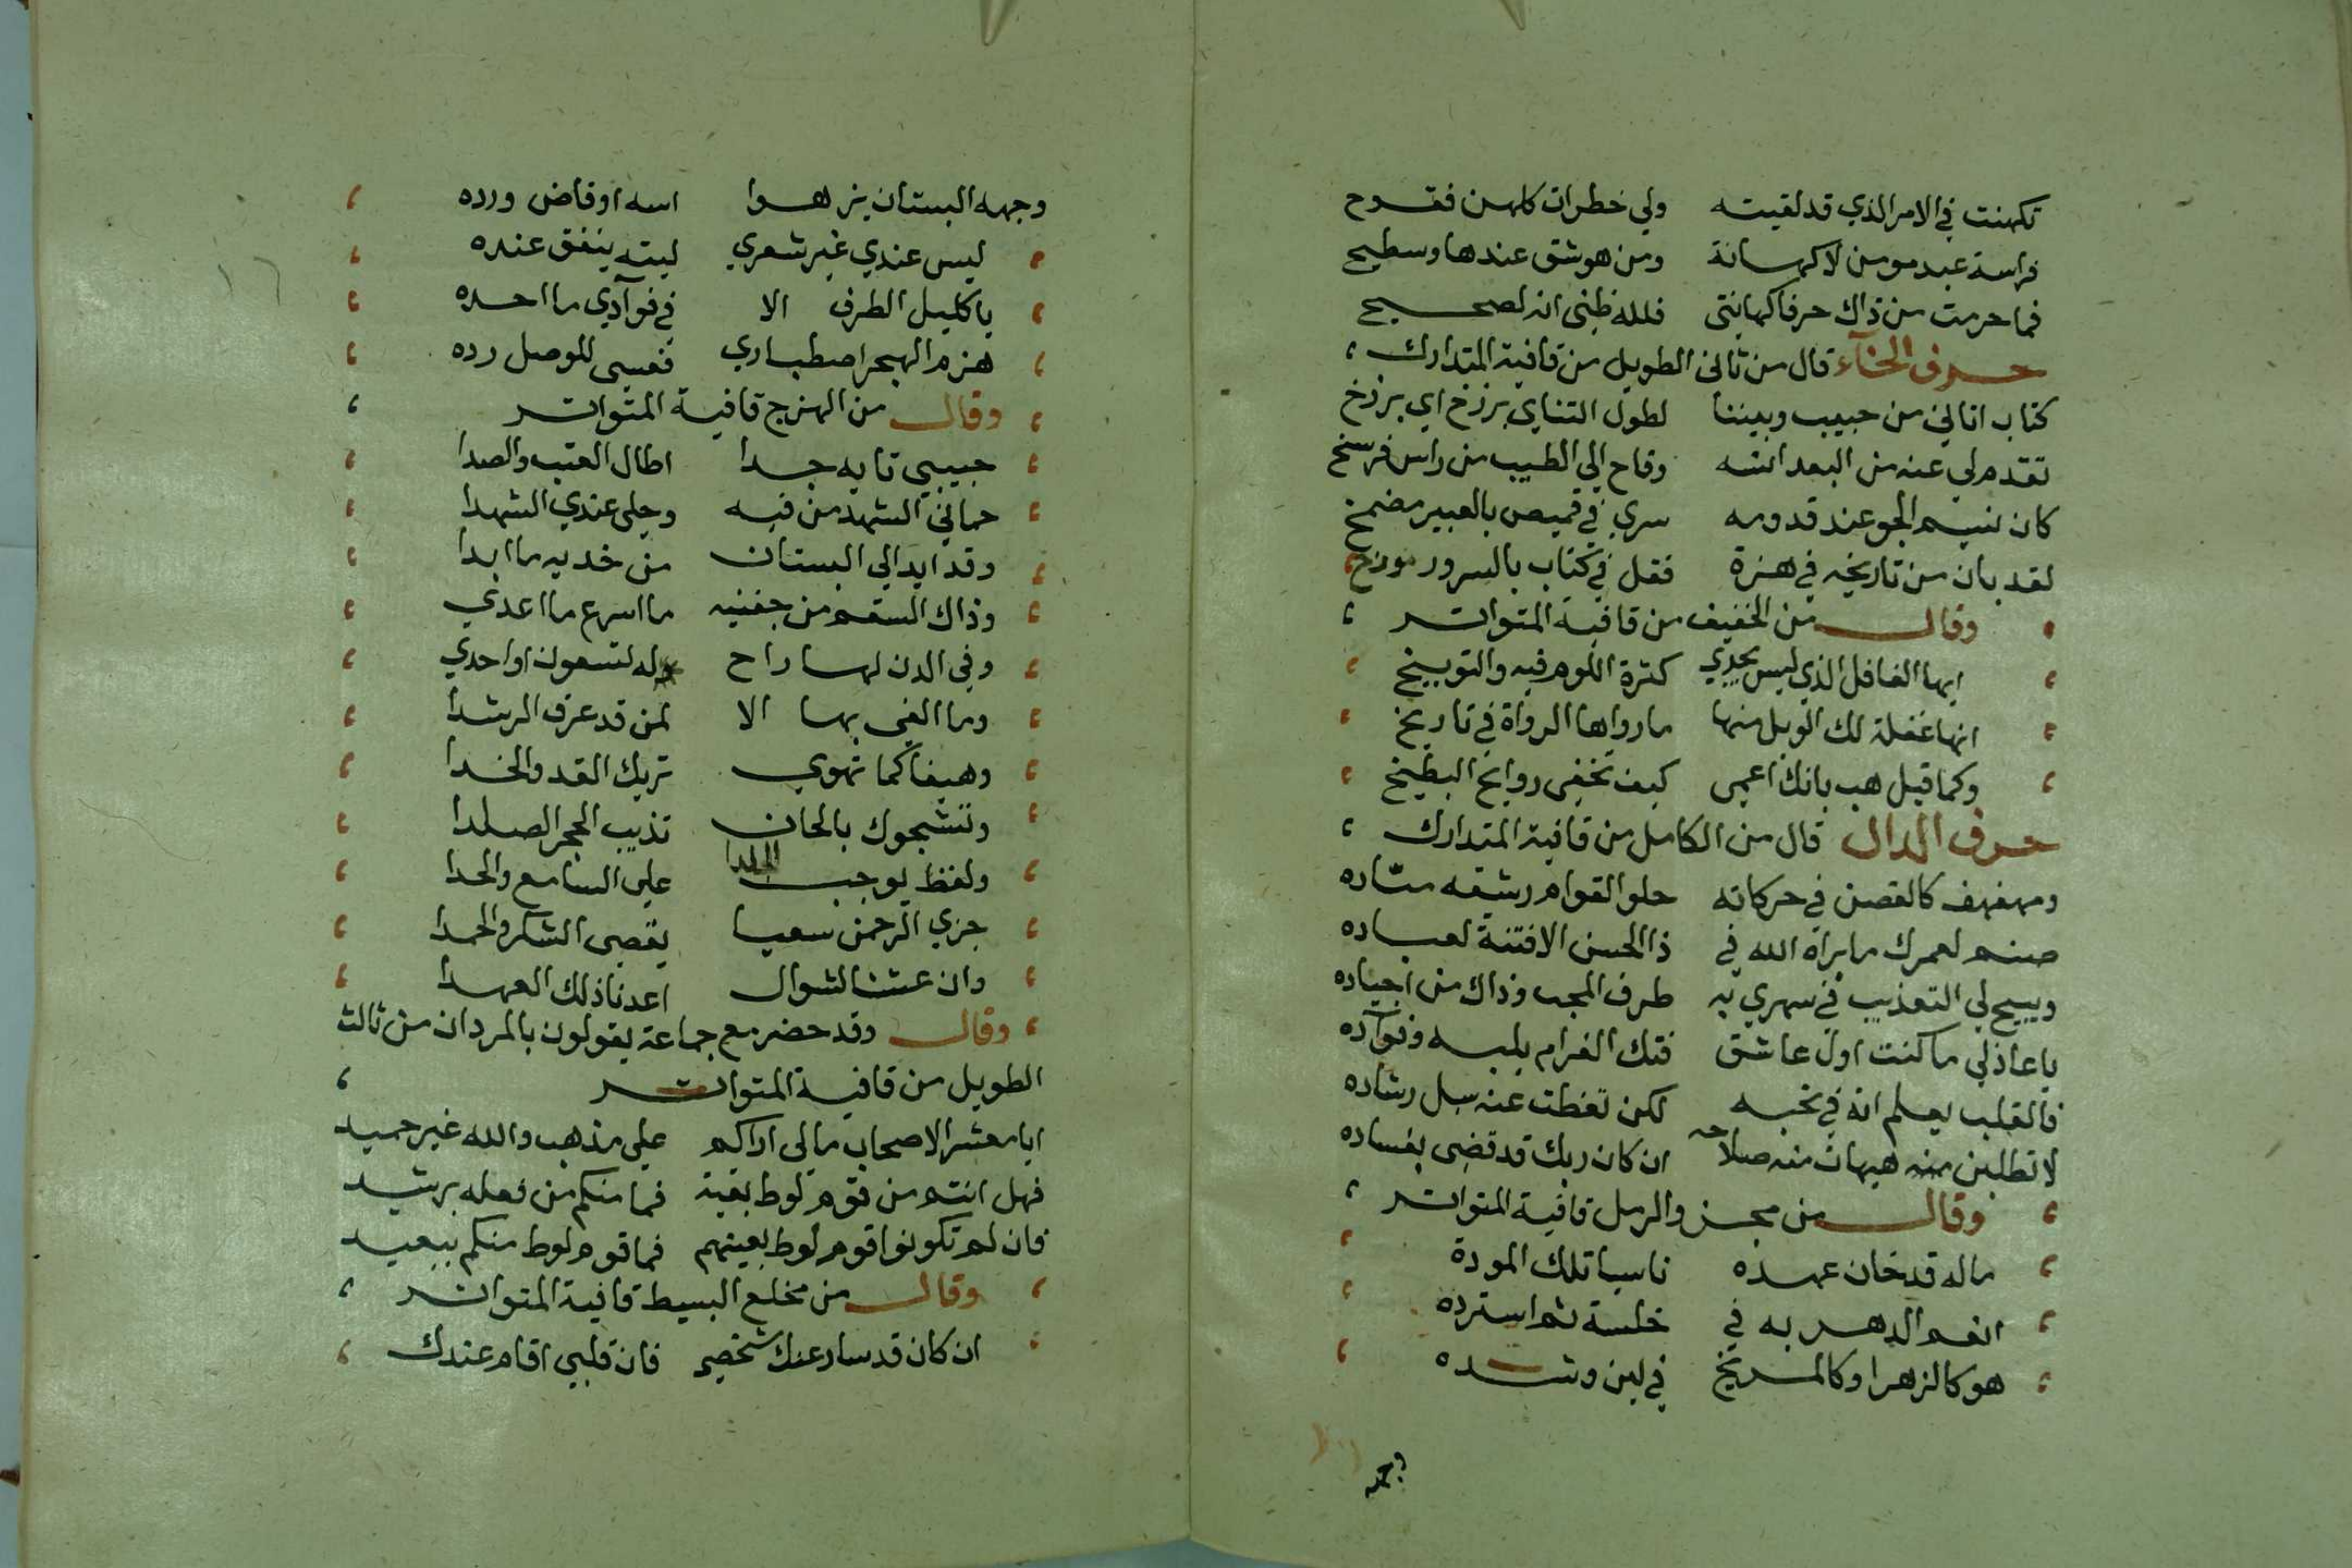 تكهنت في الامر الذي قد لقيته ولي خطرات كلهن فتوح
فراسة عبد مومن لا كهانة ومن هو شق عندها وسطيح
فما حرمت من ذاك حرفا كهانتي فلله ظني انه لصحيح
حرف الخآء قال من ثاني الطويل من قافية المتدارك
كتاب اتاني من حبيب وبيننا لطول التناي برزخ اي برزخ
تقدم لي عنه من البعد انسه وفاح الي الطيب من راس فرسخ
كان نسيم الجو عند قدومه سري في قميص بالعبير مضمخ
لقد بان من تاريخه في هزة فقل في كتاب بالسرور مورخ
وقال من الخفيف من قافية المتواتر
ايها الغافل الذي ليس يجدي كثرة اللوم فيه والتوبيخ
انها غفلة لك الويل منها ما رواها الرواة في تاريخ
وكما قيل هب بانك اعمي كيف تخفى روايح البطيخ
حرف الدال قال من الكامل من قافية المتدارك
ومهفهف كالغصن في حركاته حلو القوام رشقه متاده
صنم لعمرك ما براه الله في ذا الحسن الا فتنة لعباده
ويبيح لي التعذيب في سهري به طرف المحب وذاك من اجياده
يا عاذلي ما كنت اول عاشق فتك الغرام بلبه وفوآده
فالقلب يعلم انه في نحبه لكن تغطت عنه سبل رشاده
لا تطلبن منه هيهات منه صلاحه ان كان ربك قد قضى بفساده
وقال من مجزو الرمل قافية المتواتر
ماله قد خان عهده ناسيا تلك المودة
انعم الدهر به في خلسة ثم استرده
هو كالزهرا وكالمريخ في لين وشده
وجهه البستان يزهوا اسه او فاض ورده
ليس عندي غير شعري ليته ينفق عنده
يا كليل الطرف الا في فوآدي ما احده
هزم الهجر اصطباري فعسى للوصل رده
وقال من الهزج قافية المتواتر
حبيبي تايه جدا اطال العتب والصدا
حماني الشهد من فيه وحلى عندي الشهدا
وقد ابد الي البستان من خديه ما ابدا
وذاك السقم من جفنيه ما اسرع ما اعدي
وفي الدن لها راح له لتسعون او احدي
وما الغي بها الا لمن قد عرف الرشدا
وهيفا كما تهوي تريك القد والخدا
وتشجوك بالحان تذيب الحجر الصلدا
ولفظ يوجب علي السامع والحدا
جزي الرحمن سعيا يقصى الشكر والحمدا
وان عشنا لشوال اعدنا ذلك العهدا
وقال وقد حضر مع جماعة يقولون بالمردان من ثالث
الطويل من قافية المتواتر
ايا معشر الاصحاب مالي اراكم علي مذهب والله غير حميد
فهل انتم من قوم لوط بقية فما منكم من فعله برشيد
فان لم تكونوا قوم لوط بعينهم فما قوم لوط منكم ببعيد
وقال من مخلع البسيط قافية المتواتر
ان كان قد سار عنك شخصي فان قلبي اقام عندك